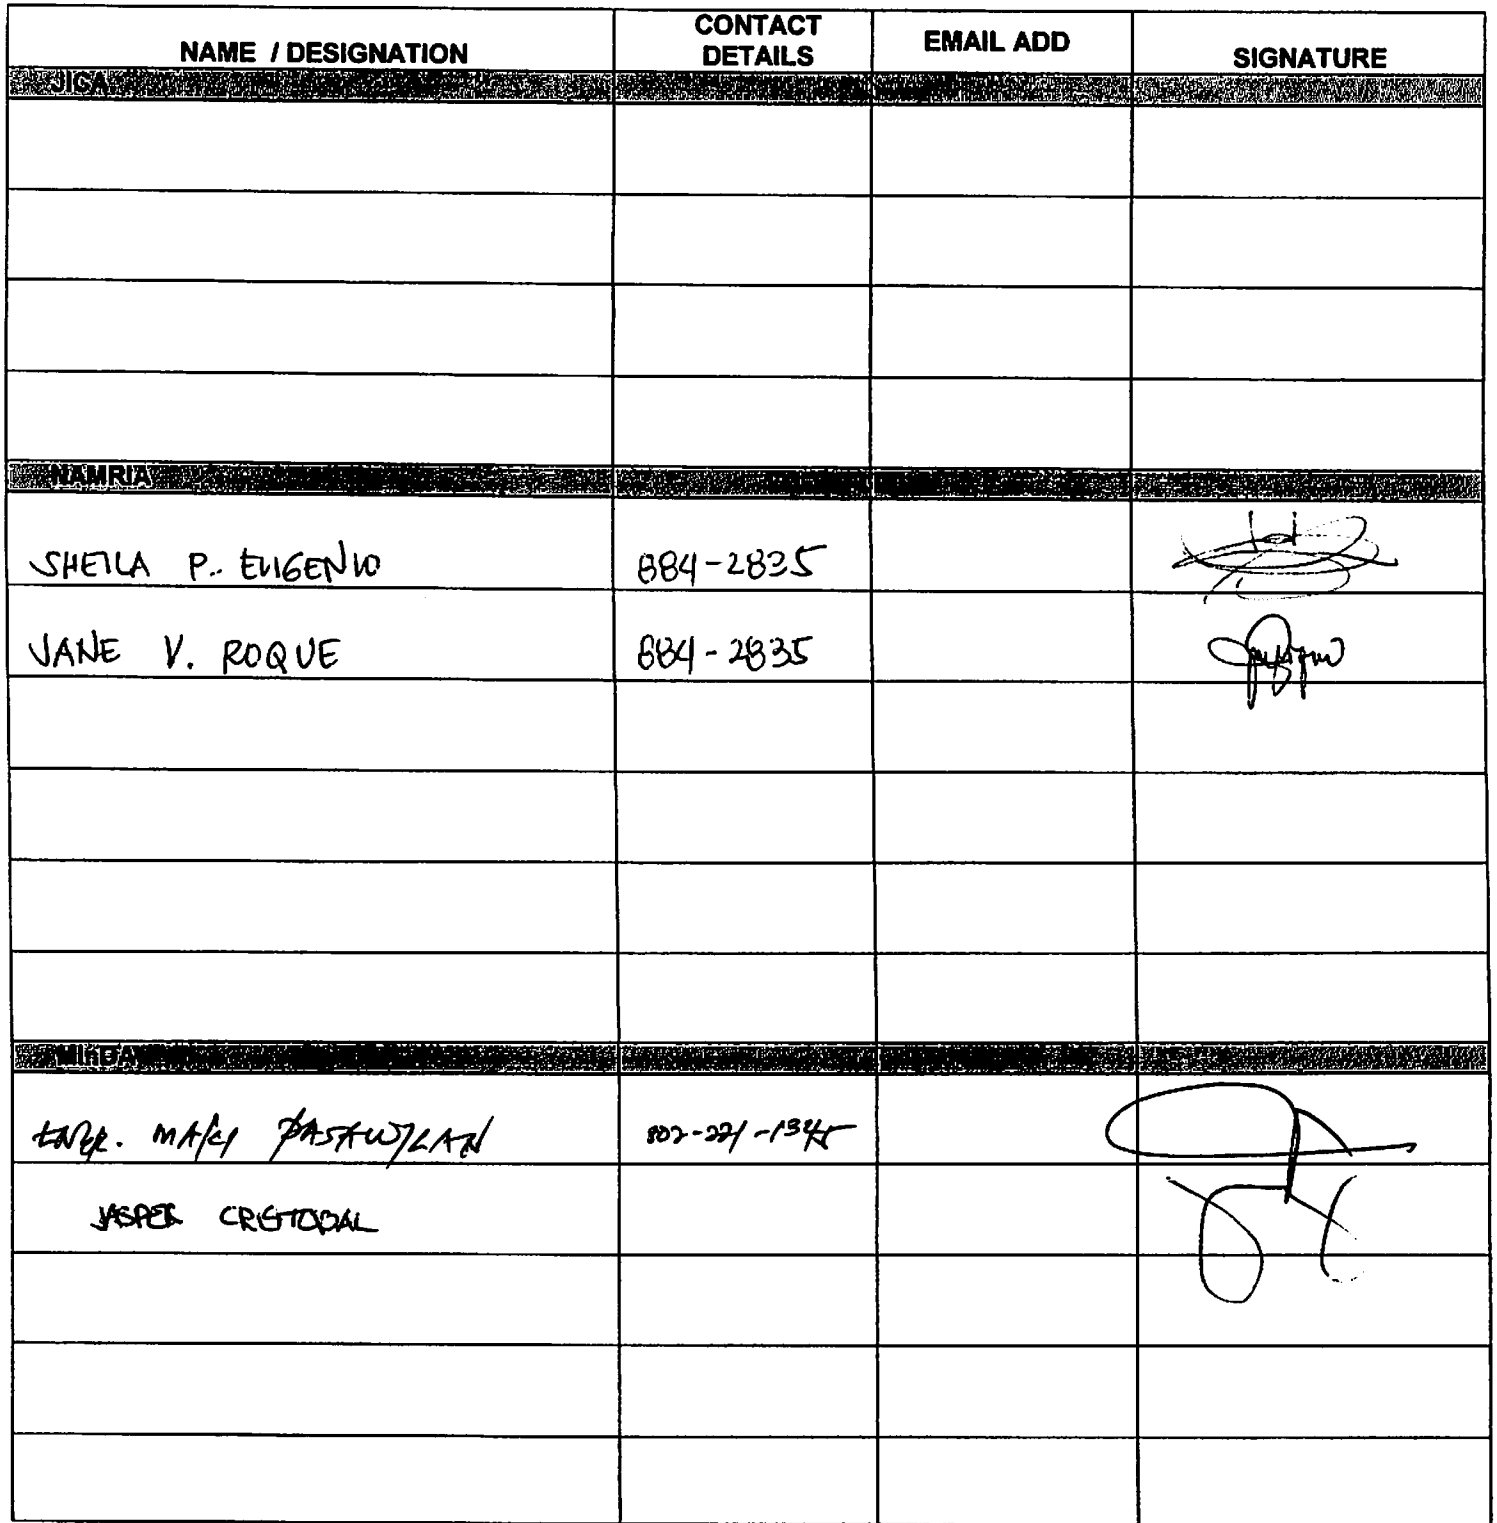 NAME / DESIGNATION
CONTACT DETAILS
EMAIL ADD
SIGNATURE
JICA
NAMRIA
SHEILA P. EUGENIO 884-2835
JANE V. ROQUE 884-2835
MinDA
ENGR. 
JASPER CRISTOBAL